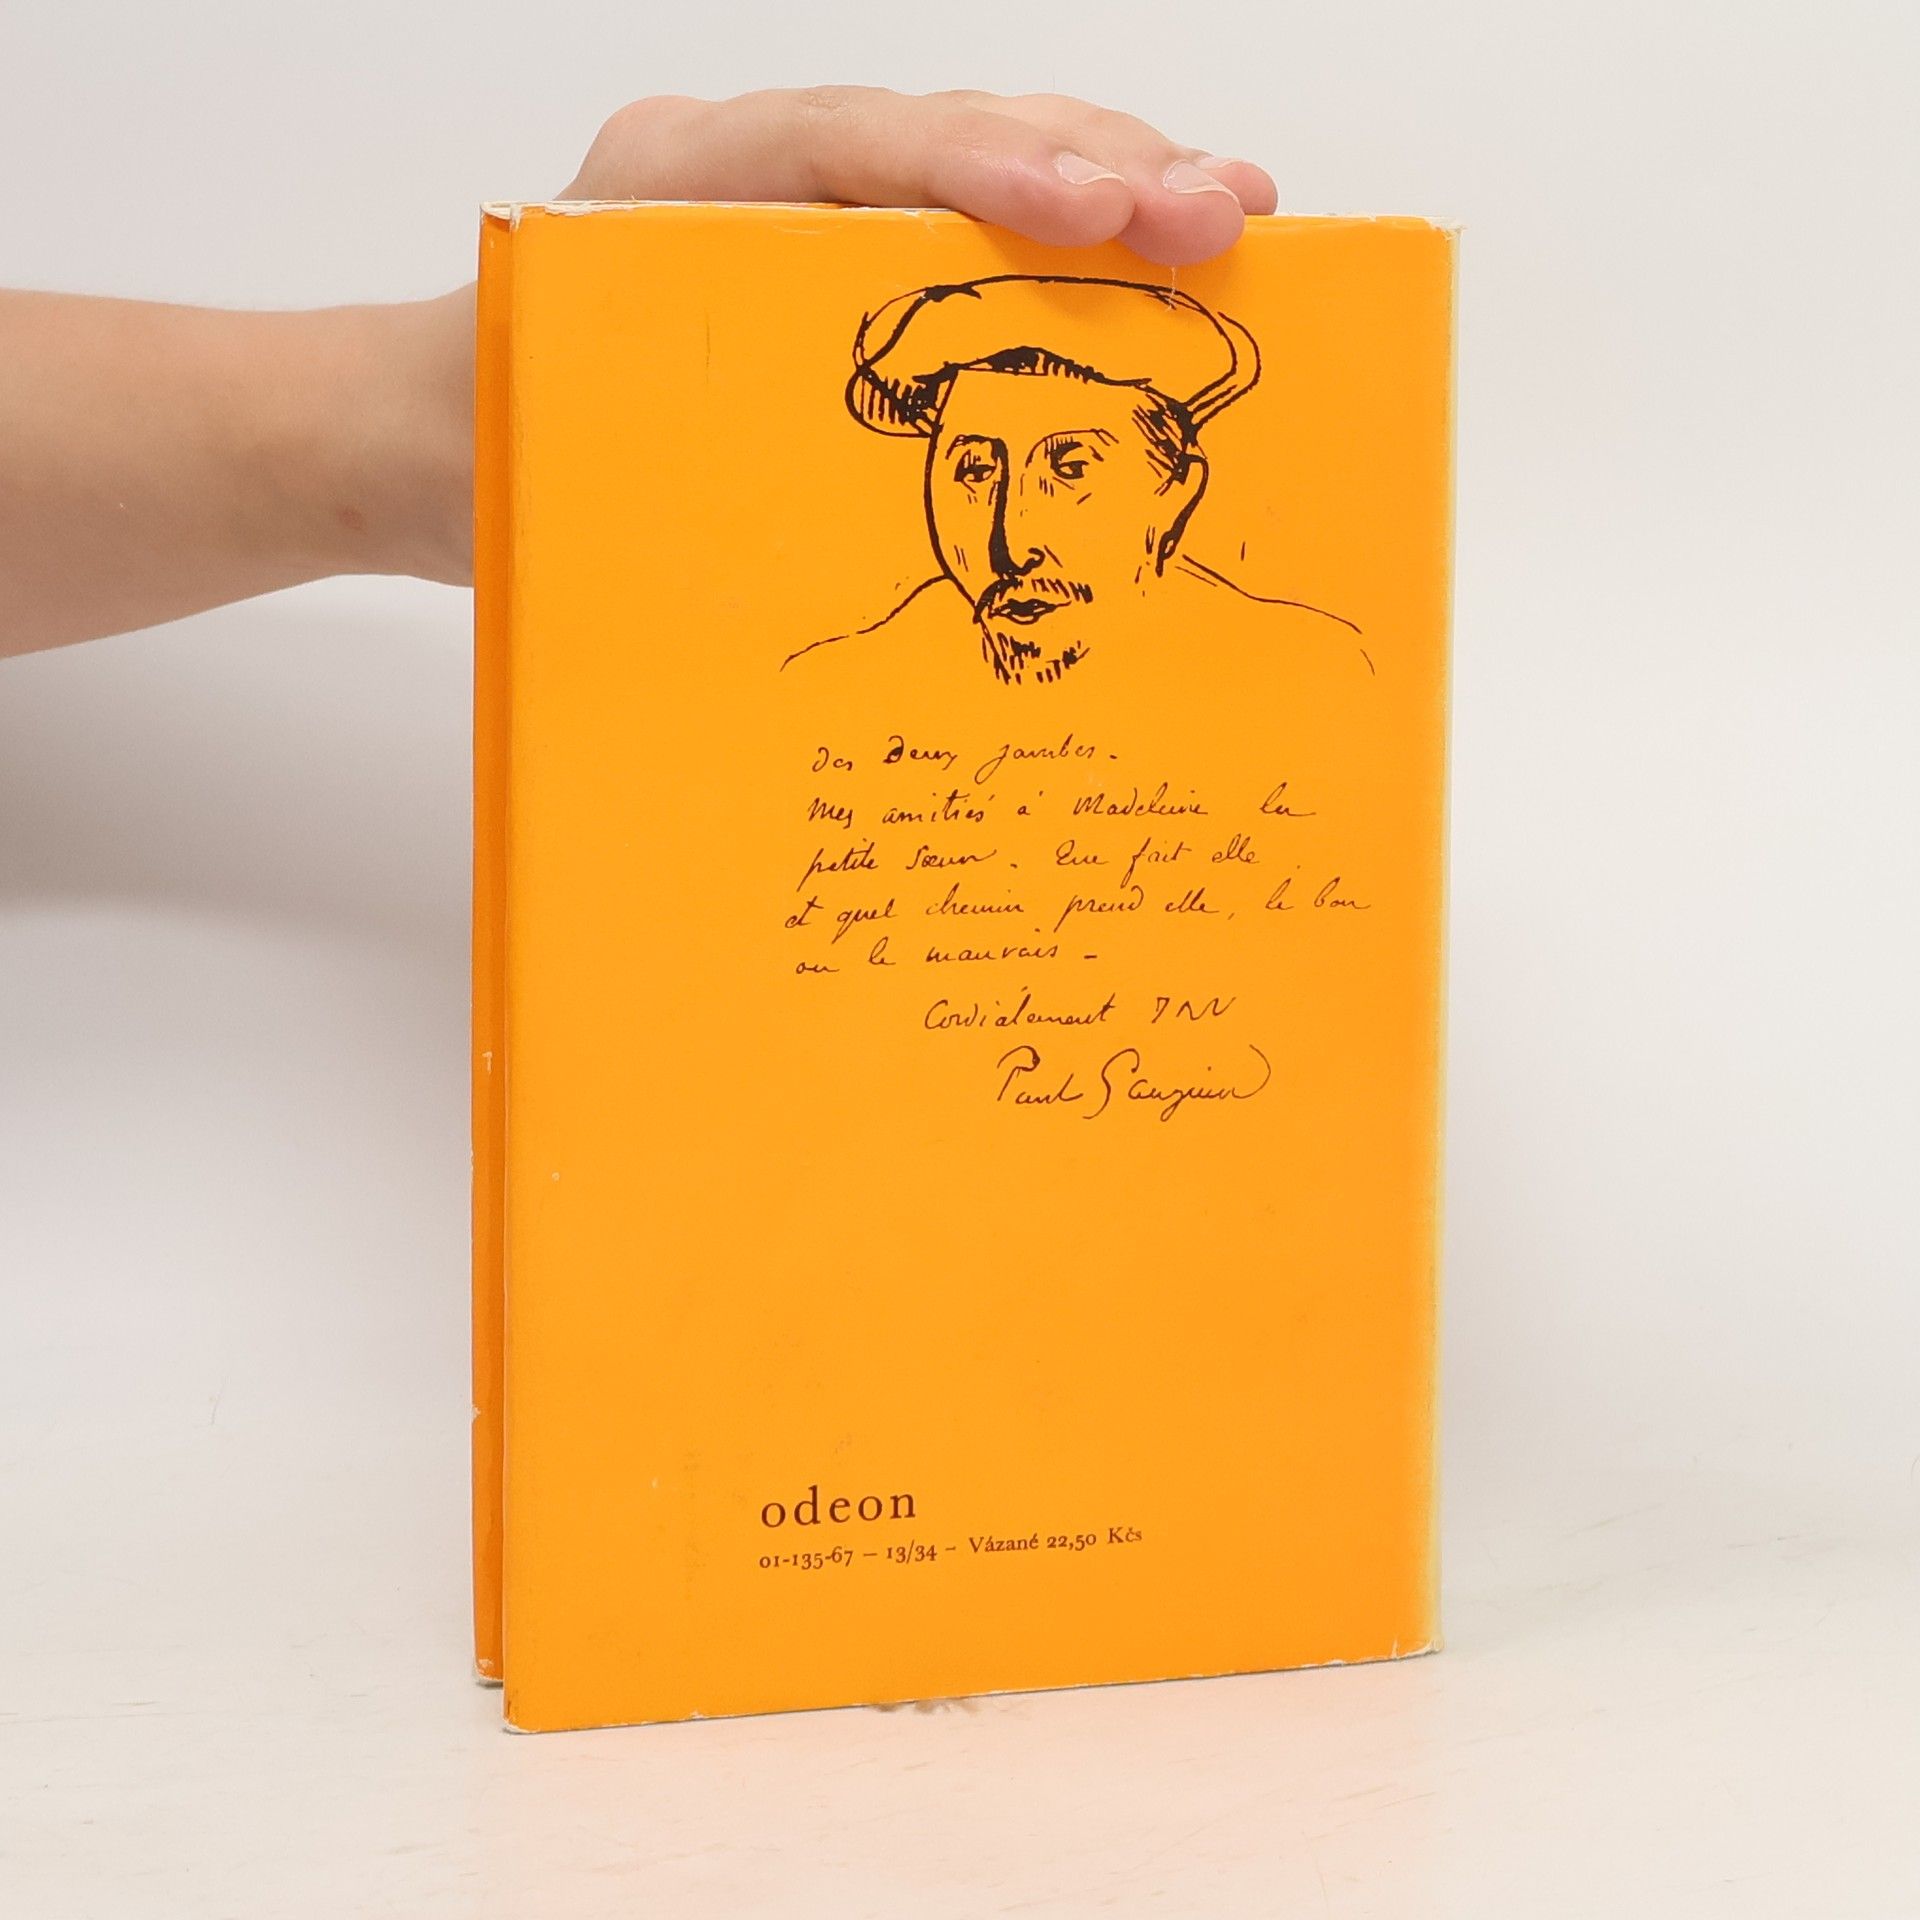 des deux jambes.
Mes amitiés à Madeleine la
petite sœur. Que fait elle
et quel chemin prend elle, le bon
ou le mauvais –
Cordialement
Paul Gauguin
odeon
01-135-67 – 13/34 – Vázané 22,50 Kčs